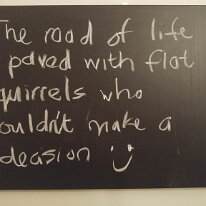 The road of life
paved with flat
quirrels who
ouldn't make a
decision